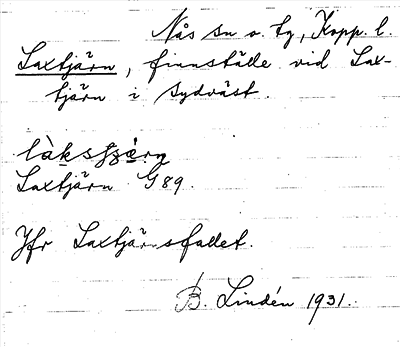 Nås sn o. tg, Kopp. l.
Laxtjärn, finnställe vid Lax-
tjärn i sydväst.
Laxtjärn G 89.
Jfr Laxtjärnsfallet.
B. Lindén 1931.